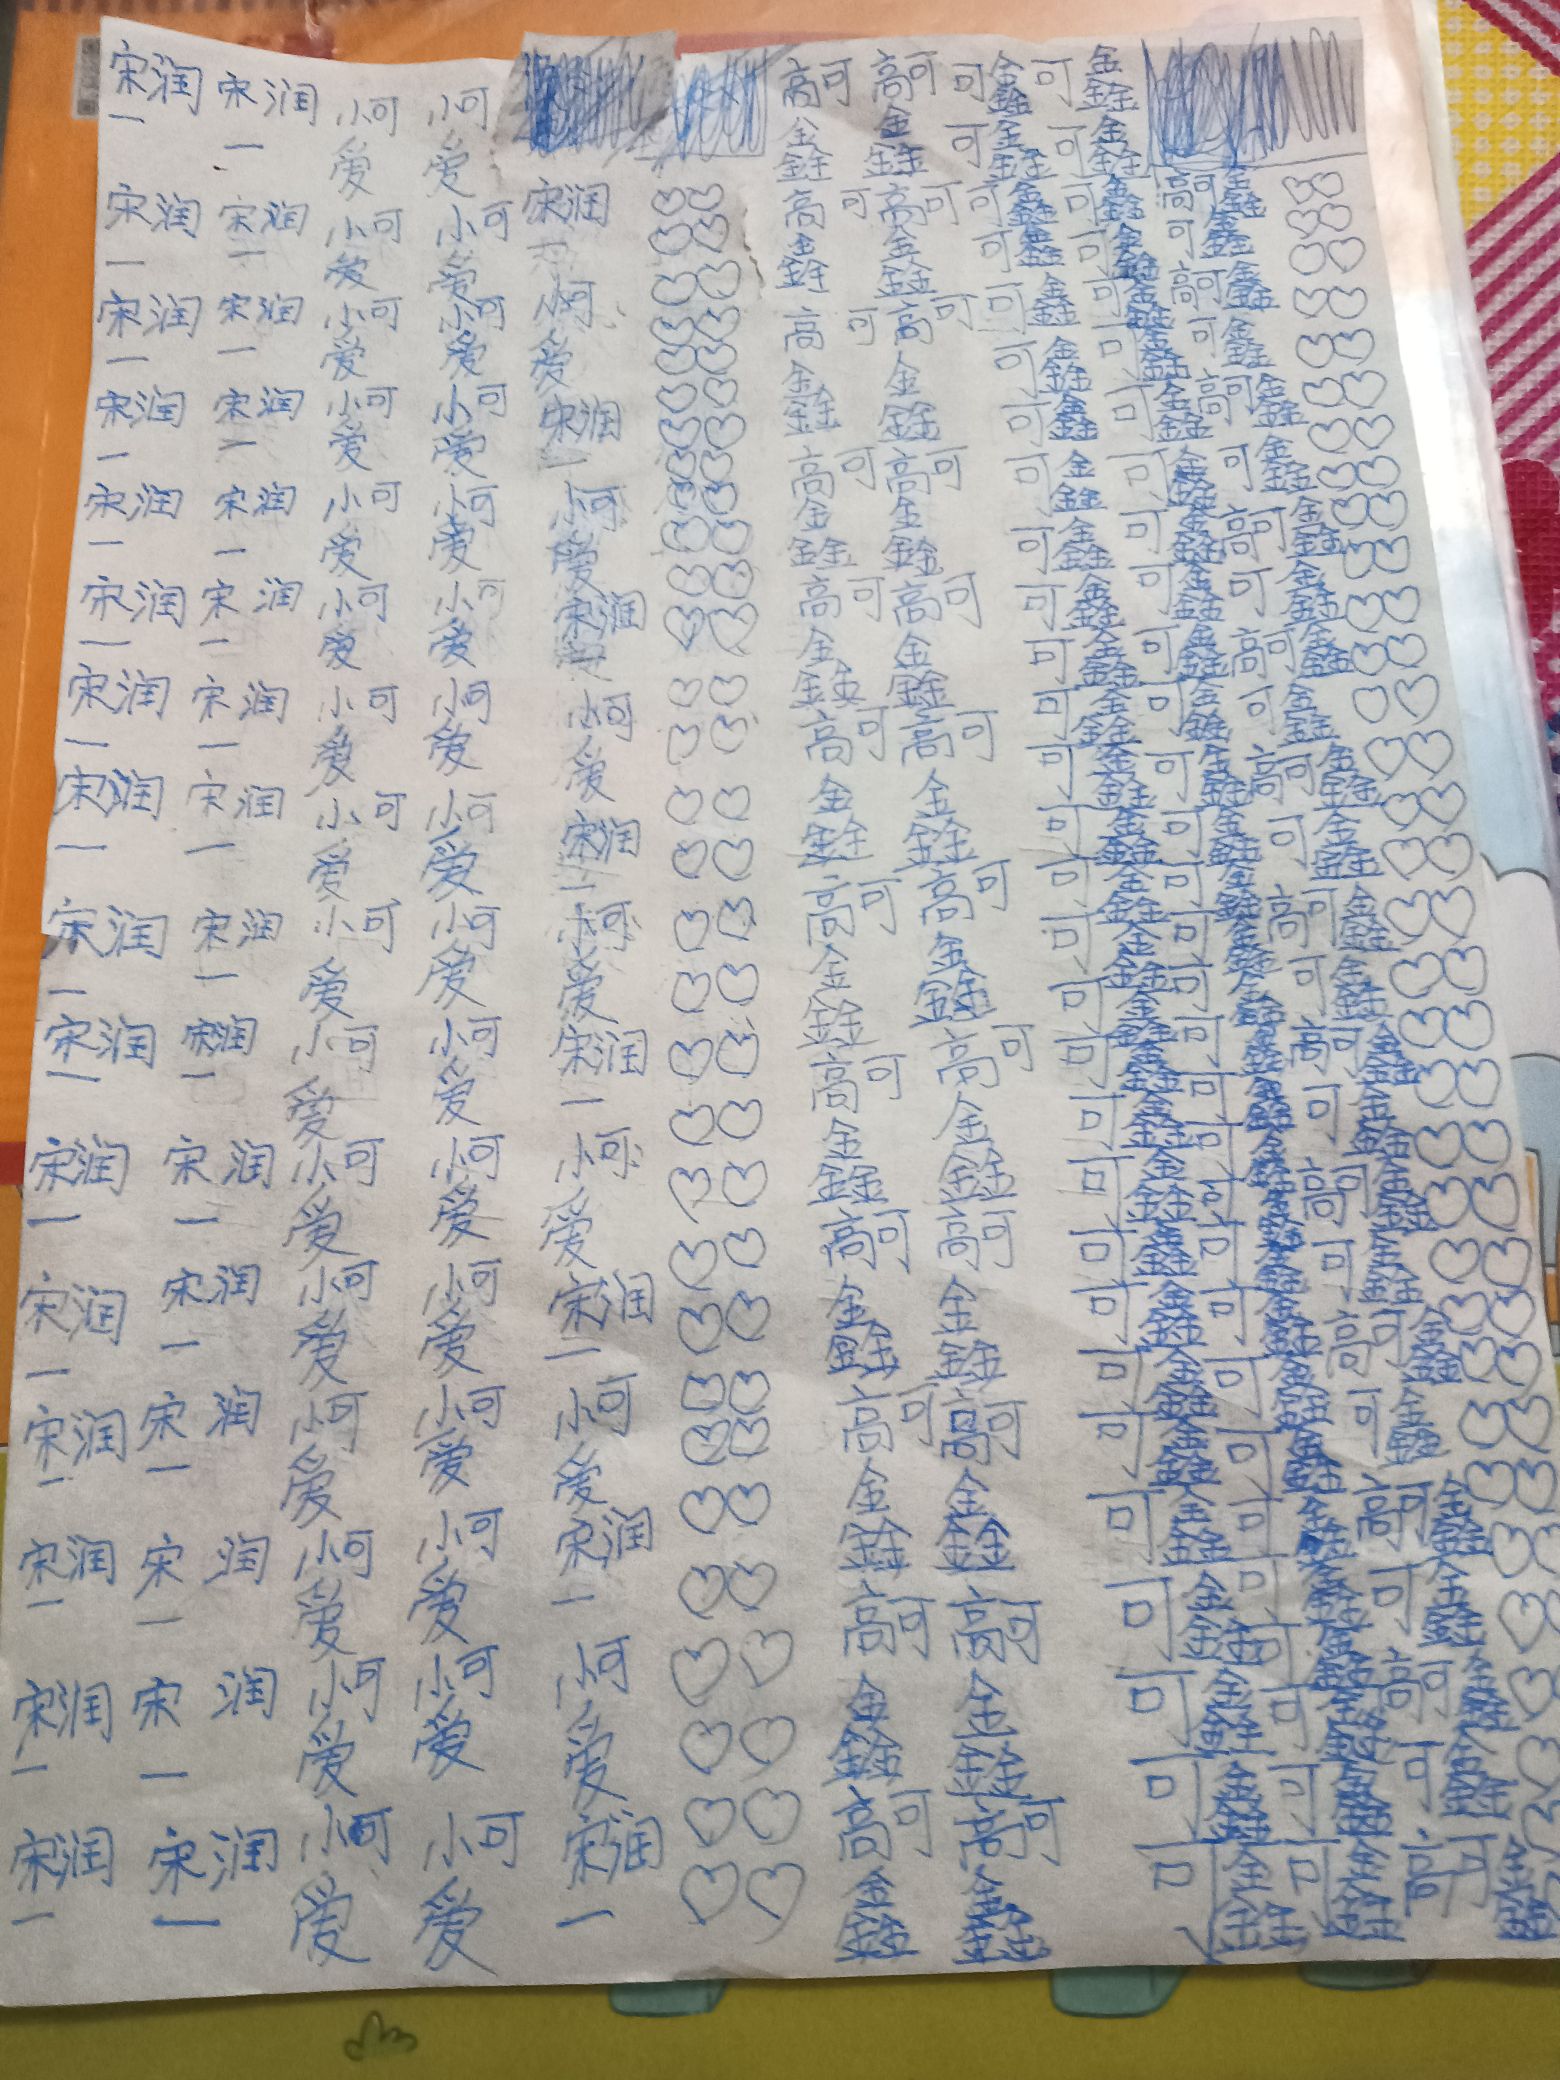 宋润 宋润 小可 小可 高可 高可 可鑫 可鑫
一 一 爱 爱 鑫 鑫 可鑫 可鑫
宋润 宋润 小可 小可 宋润 高可 高可 可鑫 可鑫 高可鑫
一 一 爱 爱 鑫 鑫 可鑫 可鑫 可鑫
宋润 宋润 小可 小可 小可 高可 高可 可鑫 可鑫 高可鑫
一 一 爱 爱 爱 鑫 鑫 可鑫 可鑫 可鑫
宋润 宋润 小可 小可 宋润 可鑫 可鑫 高可鑫
一 一 爱 爱 一 高可 高可 可鑫 可鑫 可鑫
宋润 宋润 小可 小可 小可 鑫 鑫 可鑫 可鑫 高可鑫
一 一 爱 爱 爱
宋润 宋润 小可 小可 宋润 高可 高可 可鑫 可鑫 可鑫
一 一 爱 爱 鑫 鑫 可鑫 可鑫 高可鑫
宋润 宋润 小可 小可 小可 高可 高可 可鑫 可鑫 可鑫
一 一 爱 爱 爱 可鑫 可鑫 高可鑫
宋润 宋润 小可 小可 宋润 鑫 鑫 可鑫 可鑫 可鑫
一 一 爱 爱 一 高可 高可 可鑫 可鑫
宋润 宋润 小可 小可 小可 可鑫 可鑫 高可鑫
一 一 爱 爱 爱 鑫 鑫 可鑫 可鑫 可鑫
宋润 宋润 小可 小可 宋润 高可 高可 可鑫 可鑫 高可鑫
一 一 爱 爱 一 可鑫 可鑫 可鑫
宋润 宋润 小可 小可 小可 鑫 鑫 可鑫 可鑫 高可鑫
一 一 爱 爱 爱 高可 高可 可鑫 可鑫 可鑫
宋润 宋润 小可 小可 宋润 鑫 鑫 可鑫 可鑫 高可鑫
一 一 爱 爱 一 可鑫 可鑫
宋润 宋润 小可 小可 小可 高可 高可 可鑫 可鑫 可鑫
一 一 爱 爱 爱 鑫 鑫
宋润 宋润 小可 小可 宋润 可鑫 可鑫 高可鑫
一 一 爱 爱 一 高可 高可 可鑫 可鑫 可鑫
宋润 宋润 小可 小可 小可 鑫 鑫 可鑫 可鑫 高可鑫
一 一 爱 爱 爱 高可 高可 可鑫 可鑫 可鑫
宋润 宋润 小可 小可 宋润 可鑫 可鑫 高可鑫
一 一 爱 爱 一 鑫 鑫